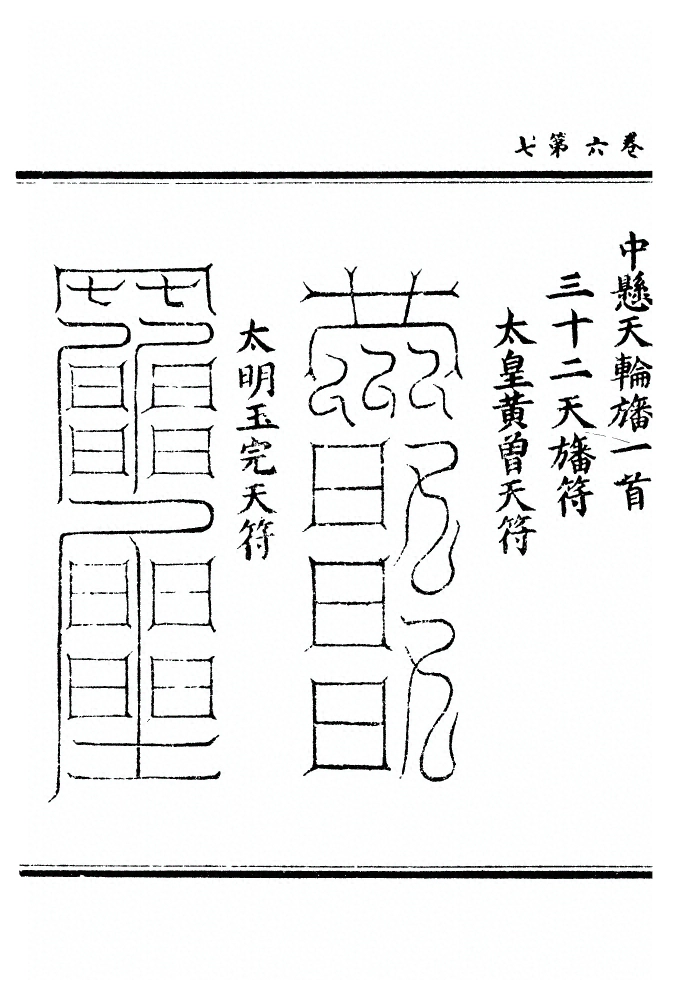 卷六第七
中懸天輪旛一首
三十二天旛符
太皇黄曾天符
太明玉完天符